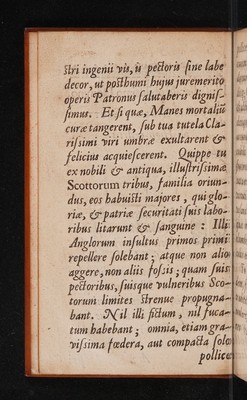 stri ingenii vis, is pectoris sine labe
decor, ut posthumi hujus juremerito
operis Patronus salutaberis dignis-
simus. Et si quæ, Manes mortaliũ
curæ tangerent, sub tua tutela Cla-
rissimi viri umbræ exultarent &
felicius acquiescerent. Quippe tu
ex nobili & antiqua, illustrissimæ
Scottorum tribus, familia oriun-
dus, eos habuisti majores, qui glo-
riæ, & patriæ securitati suis labo-
ribus litarunt & sanguine: Illi
Anglorum insultus primos primi
repellere solebant; atque non alio
aggere, non aliis fossis; quam suis
pectoribus, suisque vulneribus Sco-
torum limites strenue propugna-
bant. Nil illi fictum, nil fuca-
tum habebant; omnia, etiam gra-
vissima fœdera, aut compacta solo
pollice